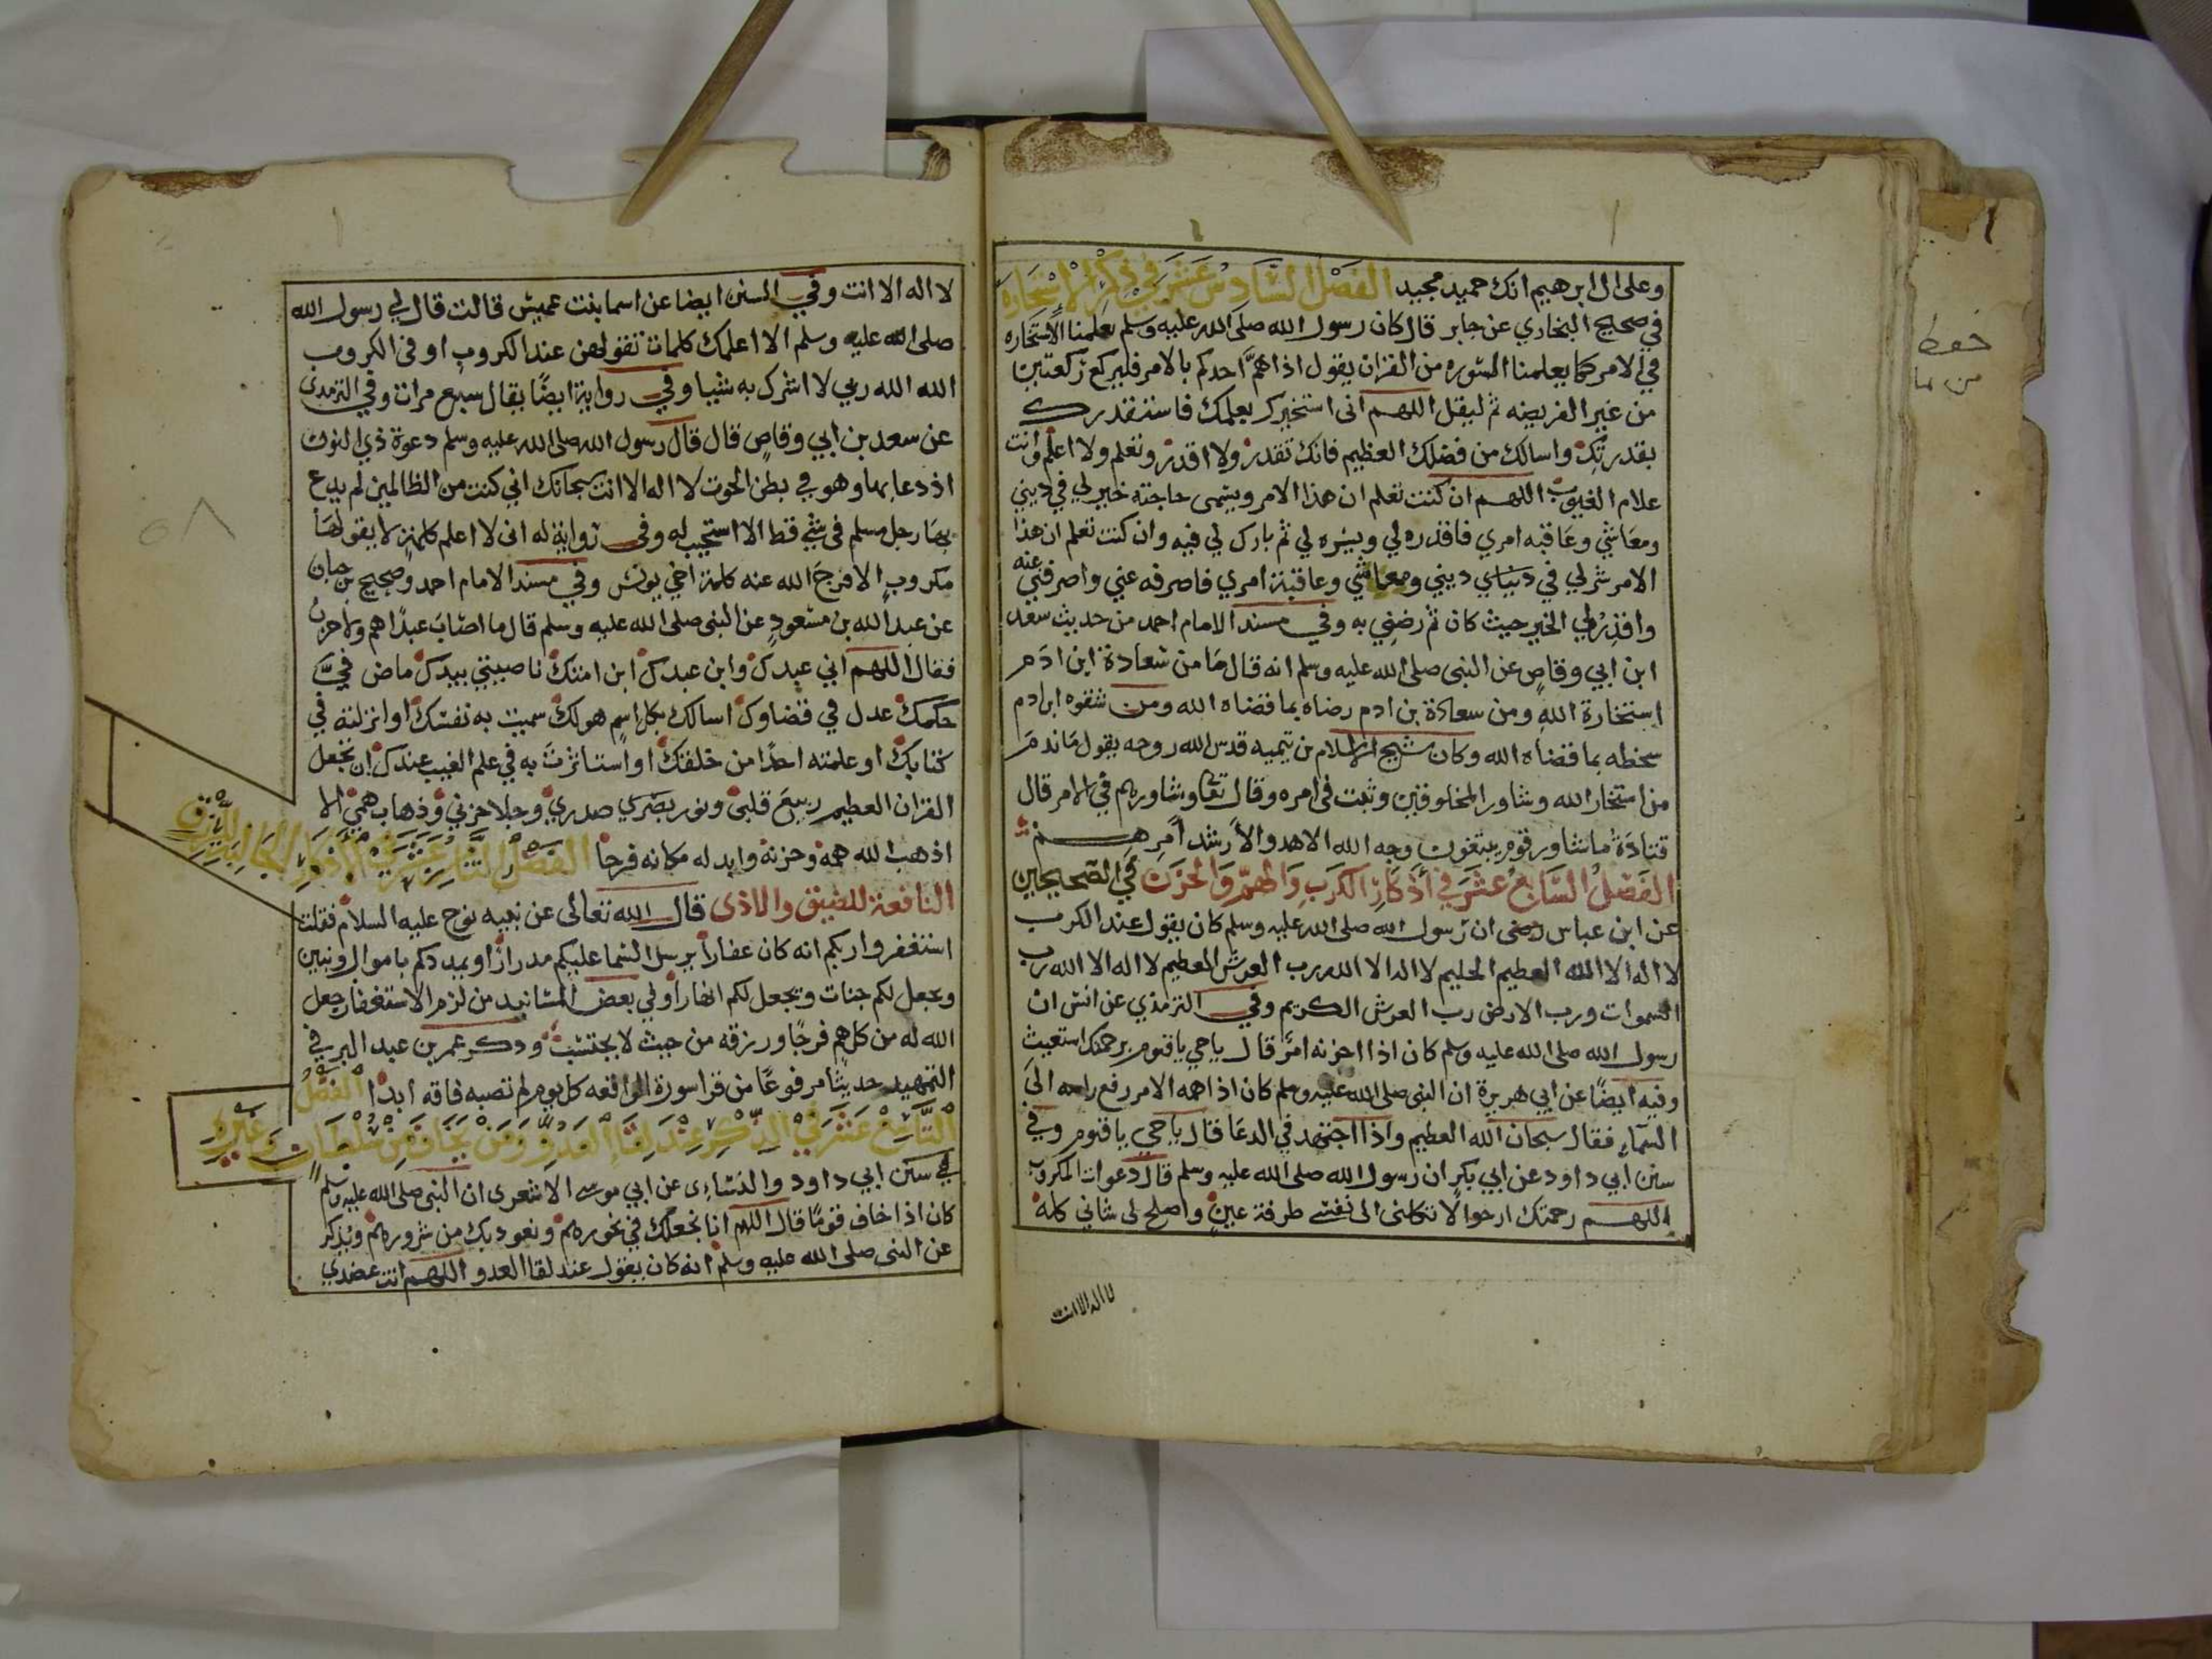 وعلى ال ابرهيم انك حميد مجيد الفَصْل السَّادِسْ عَشَر فِي ذِكْر الاِسْتخَارة
في صحيح البخاري عن جابر قال كان رسول الله صلى الله عليه وسلم يعلمنا الاستخاره
في الامر كما يعلمنا السوره من القران يقول اذا همَّ احدكم بالامر فليركع ركعتين
من غير الفريضه ثم ليقل اللهم انى استخيرك بعلمك فاستقدرك
بقدرتك واسالك من فضلك العظيم فانك تقدر ولا اقدر وتعلم ولا اعلم وانت
علام الغيوب اللهم ان كنت تعلم ان هذا الامر ويسمى حاجته خير لي في ديني
ومعاشي وعاقبه امري فاقدره لي ويسره لي ثم بارك لي فيه وان كنت تعلم ان هذا
الامر شر لي في دنياي ديني ومعاشي وعاقبة امري فاصرفه عني واصرفني عنه
واقدِرْ لي الخير حيث كان ثم رضني به وفي مسند الامام احمد من حديث سعد
ابن ابي وقاصٍ عن النبى صلى الله عليه وسلم انه قال مَا من سعادة ابن ادَم
استخارة اللهِ ومن سعادة بن ادم رضاه بما قضاه الله ومن شقوه ابن ادم
سخطه بما قضاه الله وكان شيخ الاسلام بن تيميه قدس الله روحه يقول مَا ندمَ
من استخار الله وشاور المخلوقين وثبت فى امره وقال تعا وشاورهم في الامر قال
قتادَة ما شاور قوم يبتغون وجه الله الا هدوا لأرشد أمرهم
الفَصْلُ السَّابعُ عشَرَ في أذكارِ الكَربِ وَالهمِّ وَالحَزَن في الصحيحين
عن ابن عباس رضى ان رسول الله صلى الله عليه وسلم كان يقول عند الكرب
لا اله الا الله العظيم الحليم لا اله الا الله رب العرش العظيم لا اله الا الله رب
السموات ورب الارض رب العرش الكريم وفي الترمذي عن انس ان
رسول الله صلى الله عليه وسلم كان اذا احزنه امرٌ قال يا حي يا قيوم برحمتك استغيث
وفيه ايضًا عن ابي هريرة ان النبى صلى الله عليه وسلم كان اذا اهمه الامر رفع راسه الىَ
السَّماءِ فقال سبحان الله العظيم واذا اجتهد في الدعا قال يا حي يا قيوم وفي
سنن ابي داود عن ابي بكر ان رسول الله صلى الله عليه وسلم قال دعوات المكروب
اللهم رحمتك ارجوا لا تكلنى الى نفسى طرفة عينٍ واصلح لى شانى كله
لا اله الا انت
لا اله الا انت وفي السنن ايضا عن اسما بنت عميس قالت قال لي رسول الله
صلى الله عليه وسلم الا اعلمك كلمات تقولهن عند الكروب او فى الكروب
الله الله ربي لا اشرك به شيا وفي رواية ايضًا يقال سبع مرات وفي الترمدى
عن سعد بن ابي وقاصٍ قال قال رسول الله صلى الله عليه وسلم دعوة ذي النون
اذ دعا بها وهو في بطن الحوت لا اله الا انت سبحانك اني كنت من الظالمين لم يدع
بهَا رجل مسلم فى شي قط الا استجيب له وفى رواية له انى لا اعلم كلمةٍ لا يقولهَا
مكروبٍ الا فرجَ الله عنه كلمة اخي يونس وفي مسند الامام احمد وصحيح بن حبان
عن عبد الله بن مسعودٍ عن النبى صلى الله عليه وسلم قال ما اصَابَ عبدًا هم ولا حزن
فقال اللهم اني عبدك وابن عبدك ابن امتك ناصيتي بيدك ماض فيَّ
حكمك عدل في قضاوك اسالك بكل اسمٍ هو لك سميت به نفسك او انزلته في
كتابك او علمته احدًا من خلقك او استاثرتَ به في علم الغيب عندك ان تجعل
القران العظيم ربيعَ قلبى ونور بصَري صدري وجلا حزني وذهاب همي الا
اذهب الله همه وحزنه وابد له مكانه فرحا الفَصْلُ الثَّامِن عَشَر في الأذكار الجَالبة للرِّزْق
النافعة للضيق والاذى قال الله تعالى عن نبيه نوح عليه السلام فقلت
استغفروا ربكم انه كان غفاراً يرسل السما عليكم مدراراً ويمددكم باموال وبنين
ويجعل لكم جنات ويجعل لكم انهاراً وفي بعض المسَانيد من لزم الاستغفار جعل
الله له من كل همٍ فرجًا ورزقه من حيث لا يحتسب وذكر عمر بن عبد البر في
التمهيد حديثًا مرفوعًا من قرا سورة الواقعه كل يوم لم تصبه فاقه ابدًا الفَصْلُ
التَّاسِعْ عَشَر فِي الذِّكْرِ عِنْدَ لِقَاءِ العَدُوِّ وَمَنْ يَخَافُ مِنْ سُلْطَان وَغَيْرِهِ
في سنن ابي داود والنسَاءى عن ابي موسى الاشعرى ان النبى صلى الله عليه وسلم
كان اذا خاف قومًا قال اللهم انا نجعلك في نحورهم ونعوذ بك من شرورهم ويذكر
عن النبى صلى الله عليه وسلم انه كان يقول عند لقا العدو اللهم انت عضدي